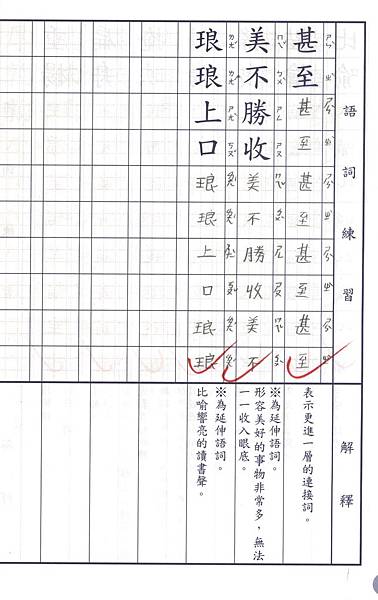 語詞練習
解釋
甚至甚至甚至甚至甚至
表示更進一層的連接詞。
美不勝收美不勝收美不
※為延伸語詞。
形容美好的事物非常多，無法
一一收入眼底。
琅琅上口琅琅上口琅琅
※為延伸語詞。
比喻響亮的讀書聲。